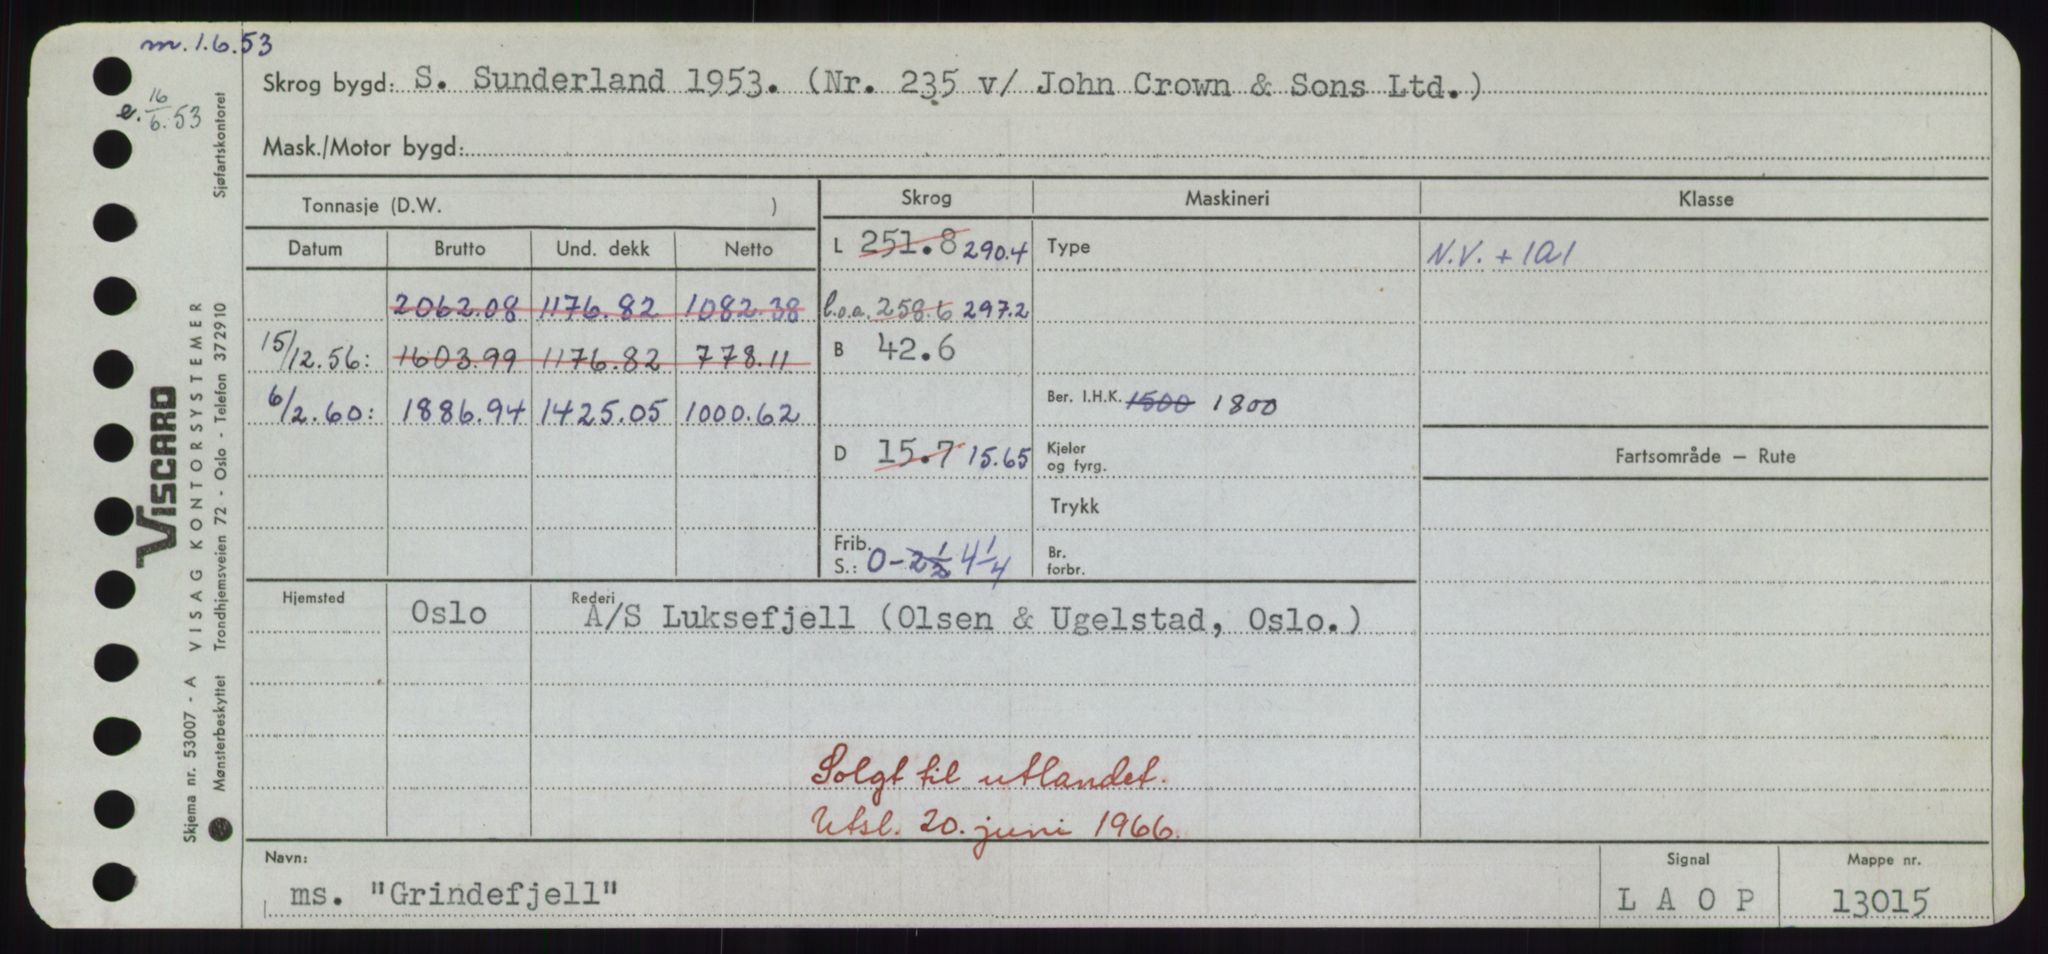 m. 1.6.53
e. 16/6.53
Skrog bygd: S. Sunderland 1953. (Nr. 235 v/ John Crown & Sons Ltd.)
Mask./Motor bygd:
Tonnasje (D.W. )
Skrog Maskineri Klasse
Datum Brutto Und. dekk Netto
L 251.8 290.4 Type N.V. + 1A1
2062.08 1176.82 1082.38 l.o.a. 258.6 297.2
15/12.56: 1603.99 1176.82 778.11 B 42.6
6/2.60: 1886.94 1425.05 1000.62 Ber. I.H.K. 1500 1800
D 15.7 15.65 Kjeler og fyrg. Fartsområde – Rute
Trykk
Frib. S.: 0-2 1/2 4 1/4 Br. forbr.
Hjemsted Oslo Rederi A/S Luksefjell (Olsen & Ugelstad, Oslo.)
Solgt til utlandet.
Utsl. 20. juni 1966.
Navn: ms. "Grindefjell"
Signal L A O P
Mappe nr. 13015
VISCARD
Skjema nr. 53007 - A VISAG KONTORSYSTEMER
Mønsterbeskyttet Trondhjemsveien 72 - Oslo - Telefon 372910 Sjøfartskontoret